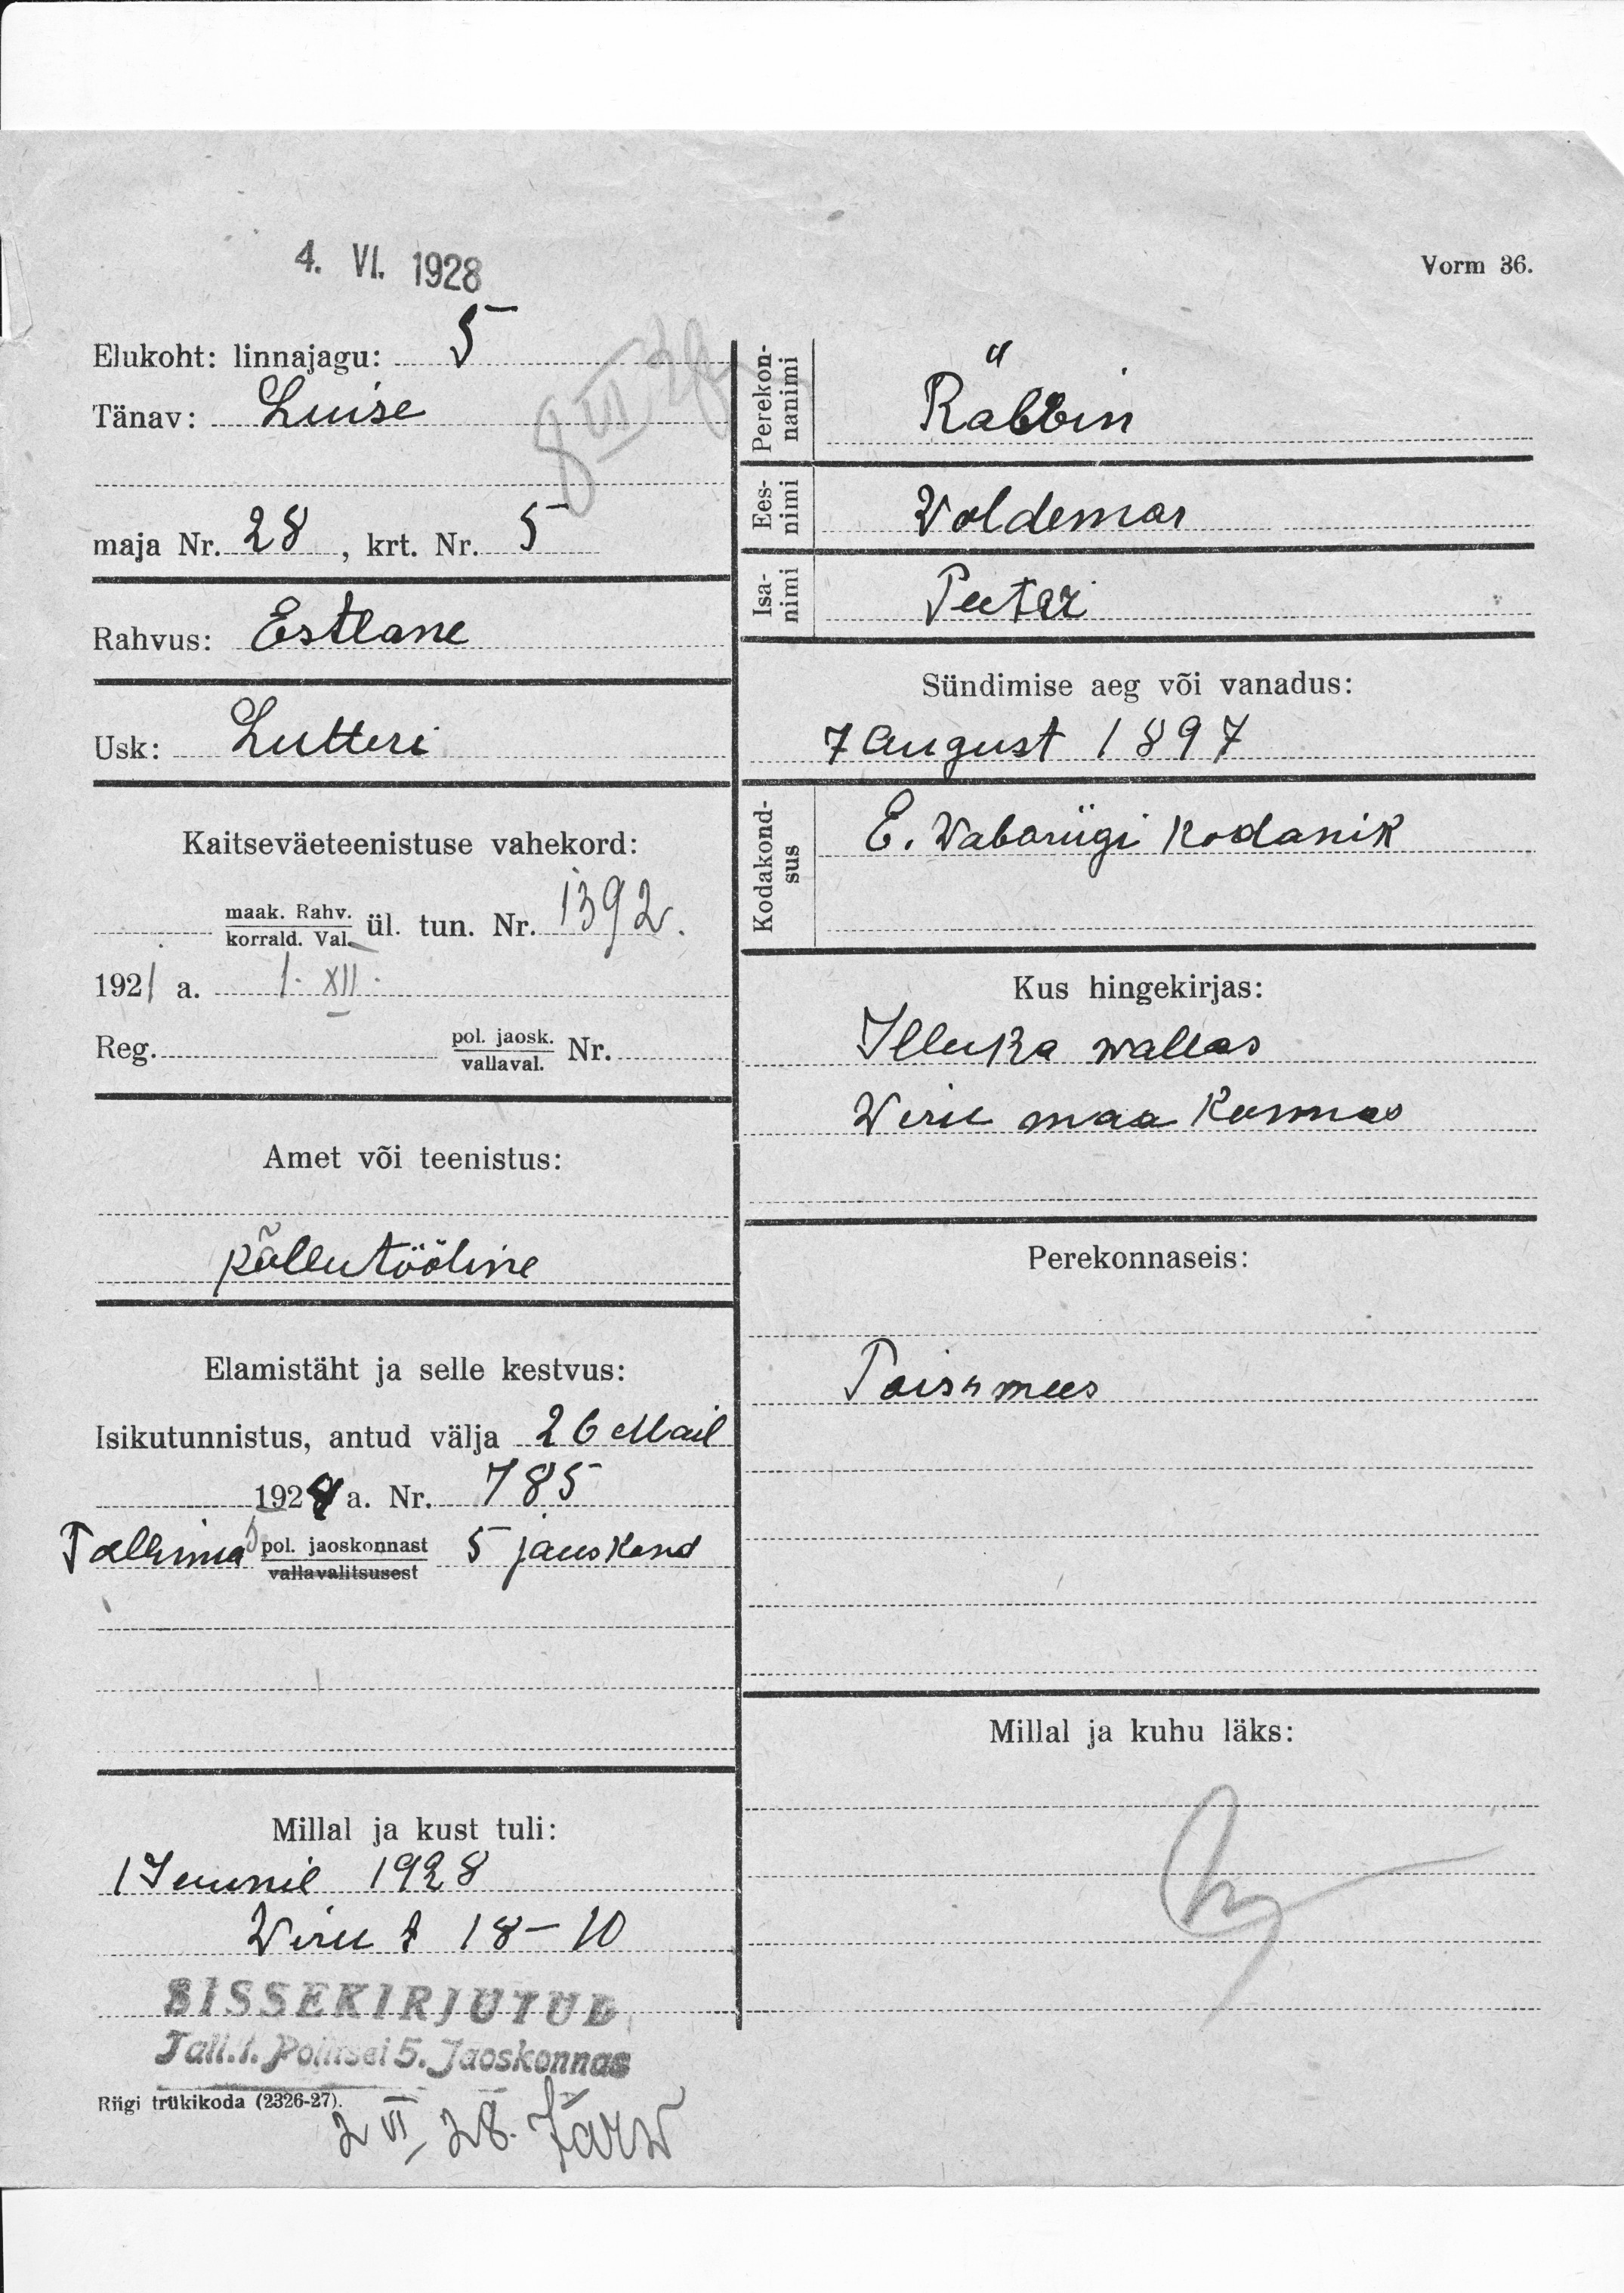 4. VI. 1928
Vorm 36.
Elukoht: linnajagu: 5
8 VI 28
Tänav: Luise
maja Nr. 28, krt. Nr. 5
Rahvus: Estlane
Usk: Lutteri
Kaitseväeteenistuse vahekord:
maak. Rahv.
korrald. Val. ül. tun. Nr. 1392.
1921 a. 1. XII.
Reg. pol. jaosk.
vallaval. Nr.
Amet või teenistus:
põllutööline
Elamistäht ja selle kestvus:
Isikutunnistus, antud välja 26 Mail
1928 a. Nr. 785
Tallinna pol. jaoskonnast 5 jauskond
vallavalitsusest
Millal ja kust tuli:
1 Juunil 1928
Wiru t 18-10
SISSEKIRJUTUD
Tall.l. Politsei 5. Jaoskonnas
Riigi trükikoda (2326-27).
2 VI 28. Järw
Perekon-
nanimi
Räbbin
Ees-
nimi
Woldemar
Isa-
nimi
Peeter
Sündimise aeg või vanadus:
7 August 1897
Kodakond-
sus
E. Wabariigi kodanik
Kus hingekirjas:
Illuka wallas
Wiru maa konnas
Perekonnaseis:
Poissmees
Millal ja kuhu läks: